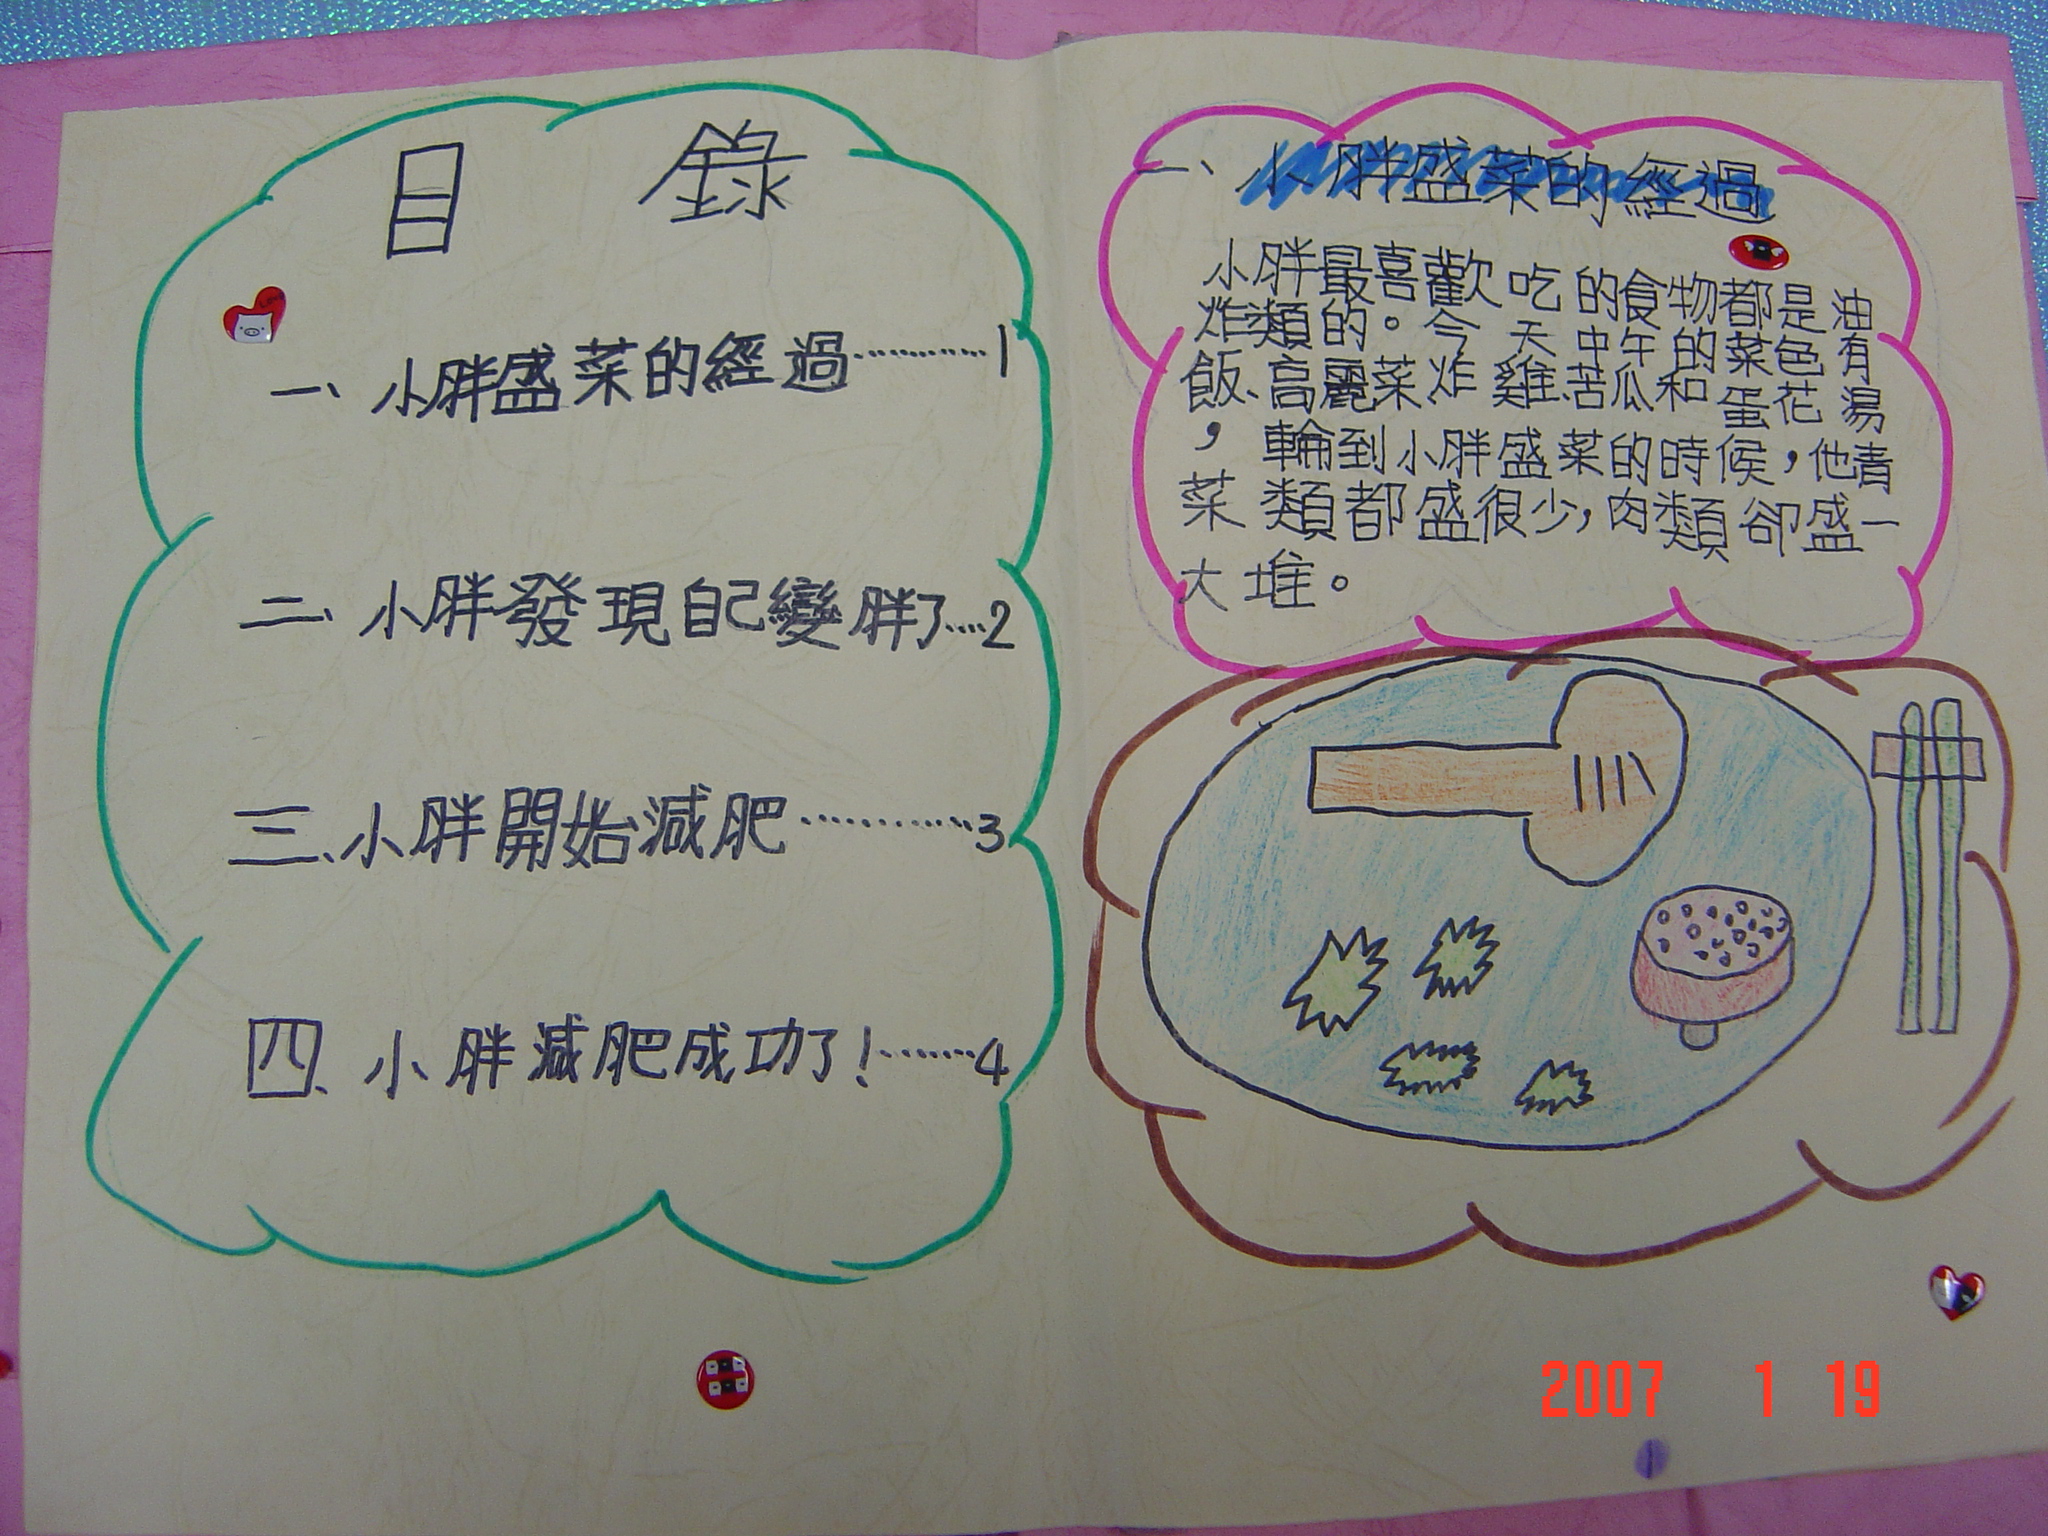 目錄
一、小胖盛菜的經過…………1
二、小胖發現自己變胖了……2
三、小胖開始減肥…………3
四、小胖減肥成功了！………4
一、小胖盛菜的經過
小胖最喜歡吃的食物都是油
炸類的。今天中午的菜色有
飯、高麗菜炸雞苦瓜和蛋花湯
，輪到小胖盛菜的時候，他青
菜類都盛很少，肉類卻盛一
大堆。
2007 1 19